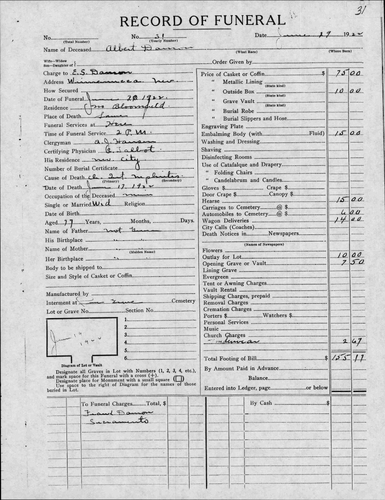 31
RECORD OF FUNERAL
No. No. 31 Date June 29 1922
(Total Number) (Yearly Number)
Name of Deceased Albert Damon
Wife-Widow
Son-Daughter of Order Given by
Charge to E.S. Damon
Address Winnemucca Nev.
How Secured
Date of Funeral June 30 1922
Residence Bloomfield
Place of Death Same
Funeral Services at Here
Time of Funeral Service 2 P.M.
Clergyman
Certifying Physician Talbot
His Residence City
Number of Burial Certificate
Cause of Death
(Primary) (Secondary)
Date of Death June 1922
Occupation of the Deceased
Single or Married Wid Religion
Date of Birth
Aged 77 Years, Months, Days
Name of Father not
His Birthplace
Name of Mother
(Maiden Name)
Her Birthplace
Body to be shipped to
Size and Style of Casket or Coffin
Manufactured by
Interment at Cemetery
Lot or Grave No. Section No.
1.
2.
3.
4.
5.
6.
Diagram of Lot or Vault
Designate all Graves in Lot with Numbers (1, 2, 3, 4, etc.), and mark space for this Funeral with a cross (+).
Designate place for Monument with a small square
Use space to the right of Diagram for the names of those buried in Lot.
Price of Casket or Coffin $ 75 00
" Metallic Lining
(State Kind)
" Outside Box 10 00
(State Kind)
" Grave Vault
(State Kind)
" Burial Robe
(State Kind)
" Burial Slippers and Hose
Engraving Plate
Embalming Body (with Fluid) 15 00
Washing and Dressing
Shaving
Disinfecting Rooms
Use of Catafalque and Drapery
" Folding Chairs
" Candelabrum and Candles
Gloves $ Crape $
Door Crape $ Canopy $
Hearse 15 00
Carriages to Cemetery @$
Automobiles to Cemetery @$ 6 00
Wagon Deliveries 14 00
City Calls (Coaches)
Death Notices in Newspapers
(Names of Newspapers)
Flowers
Outlay for Lot 10 00
Opening Grave or Vault 7 50
Lining Grave
Evergreen
Tent or Awning Charges
Vault Rental
Shipping Charges, prepaid
Removal Charges
Cremation Charges
Porters $ Watchers $
Personal Services
Music
Church Charges
2 67
Total Footing of Bill $ 155 17
By Amount Paid in Advance
Balance
Entered into Ledger, page or below
To Funeral Charges Total $ By Cash $
Frank Damon
Sacramento